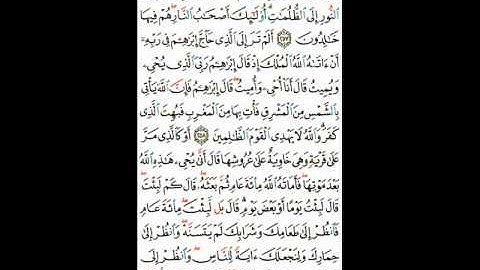 النُّورِ إِلَى الظُّلُمَٰتِ أُو۟لَٰٓئِكَ أَصْحَٰبُ النَّارِ هُمْ فِيهَا
خَٰلِدُونَ ٢٥٧ أَلَمْ تَرَ إِلَى الَّذِى حَآجَّ إِبْرَٰهِـۧمَ فِى رَبِّهِۦٓ
أَنْ ءَاتَىٰهُ اللَّهُ الْمُلْكَ إِذْ قَالَ إِبْرَٰهِـۧمُ رَبِّىَ الَّذِى يُحْىِۦ
وَيُمِيتُ قَالَ أَنَا۠ أُحْىِۦ وَأُمِيتُ قَالَ إِبْرَٰهِـۧمُ فَإِنَّ اللَّهَ يَأْتِى
بِالشَّمْسِ مِنَ الْمَشْرِقِ فَأْتِ بِهَا مِنَ الْمَغْرِبِ فَبُهِتَ الَّذِى
كَفَرَ وَاللَّهُ لَا يَهْدِى الْقَوْمَ الظَّٰلِمِينَ ٢٥٨ أَوْ كَالَّذِى مَرَّ
عَلَىٰ قَرْيَةٍ وَهِىَ خَاوِيَةٌ عَلَىٰ عُرُوشِهَا قَالَ أَنَّىٰ يُحْىِۦ هَٰذِهِ اللَّهُ
بَعْدَ مَوْتِهَا فَأَمَاتَهُ اللَّهُ مِا۟ئَةَ عَامٍ ثُمَّ بَعَثَهُۥ قَالَ كَمْ لَبِثْتَ
قَالَ لَبِثْتُ يَوْمًا أَوْ بَعْضَ يَوْمٍ قَالَ بَل لَّبِثْتَ مِا۟ئَةَ عَامٍ
فَانظُرْ إِلَىٰ طَعَامِكَ وَشَرَابِكَ لَمْ يَتَسَنَّهْ وَانظُرْ إِلَىٰ
حِمَارِكَ وَلِنَجْعَلَكَ ءَايَةً لِّلنَّاسِ وَانظُرْ إِلَى